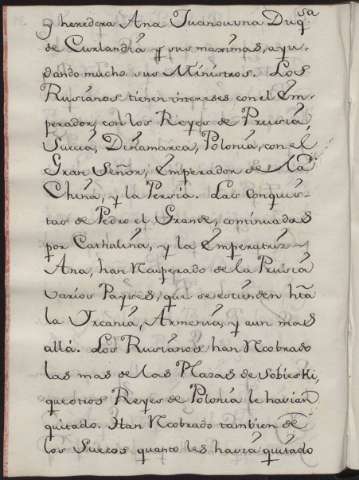 y heredera Ana Iuanouvna Duq.sa
de Curlandia y sus maximas, ayu
dando mucho sus Ministros. Los
Rusianos tienen intereses con el Em-
perador, con los Reyes de Prusia,
Suecia, Dinamarca, Polonia, con el
Gran Señor, Emperador de la
China, y la Persia. Las conquis-
tas de Pedro el Grande, continuadas
por Cathalina, y la Emperatriz
Ana, han recuperado de la Rusia
varios Payses, que se estienden hta
la Ircania, Armenia, y aun mas
allá. Los Rusianos han recobrado
las mas de las Plazas de Sobieski,
que otros Reyes de Polonia le havian
quitado. Han recobrado tambien de
los Suecos quanto les havia quitado